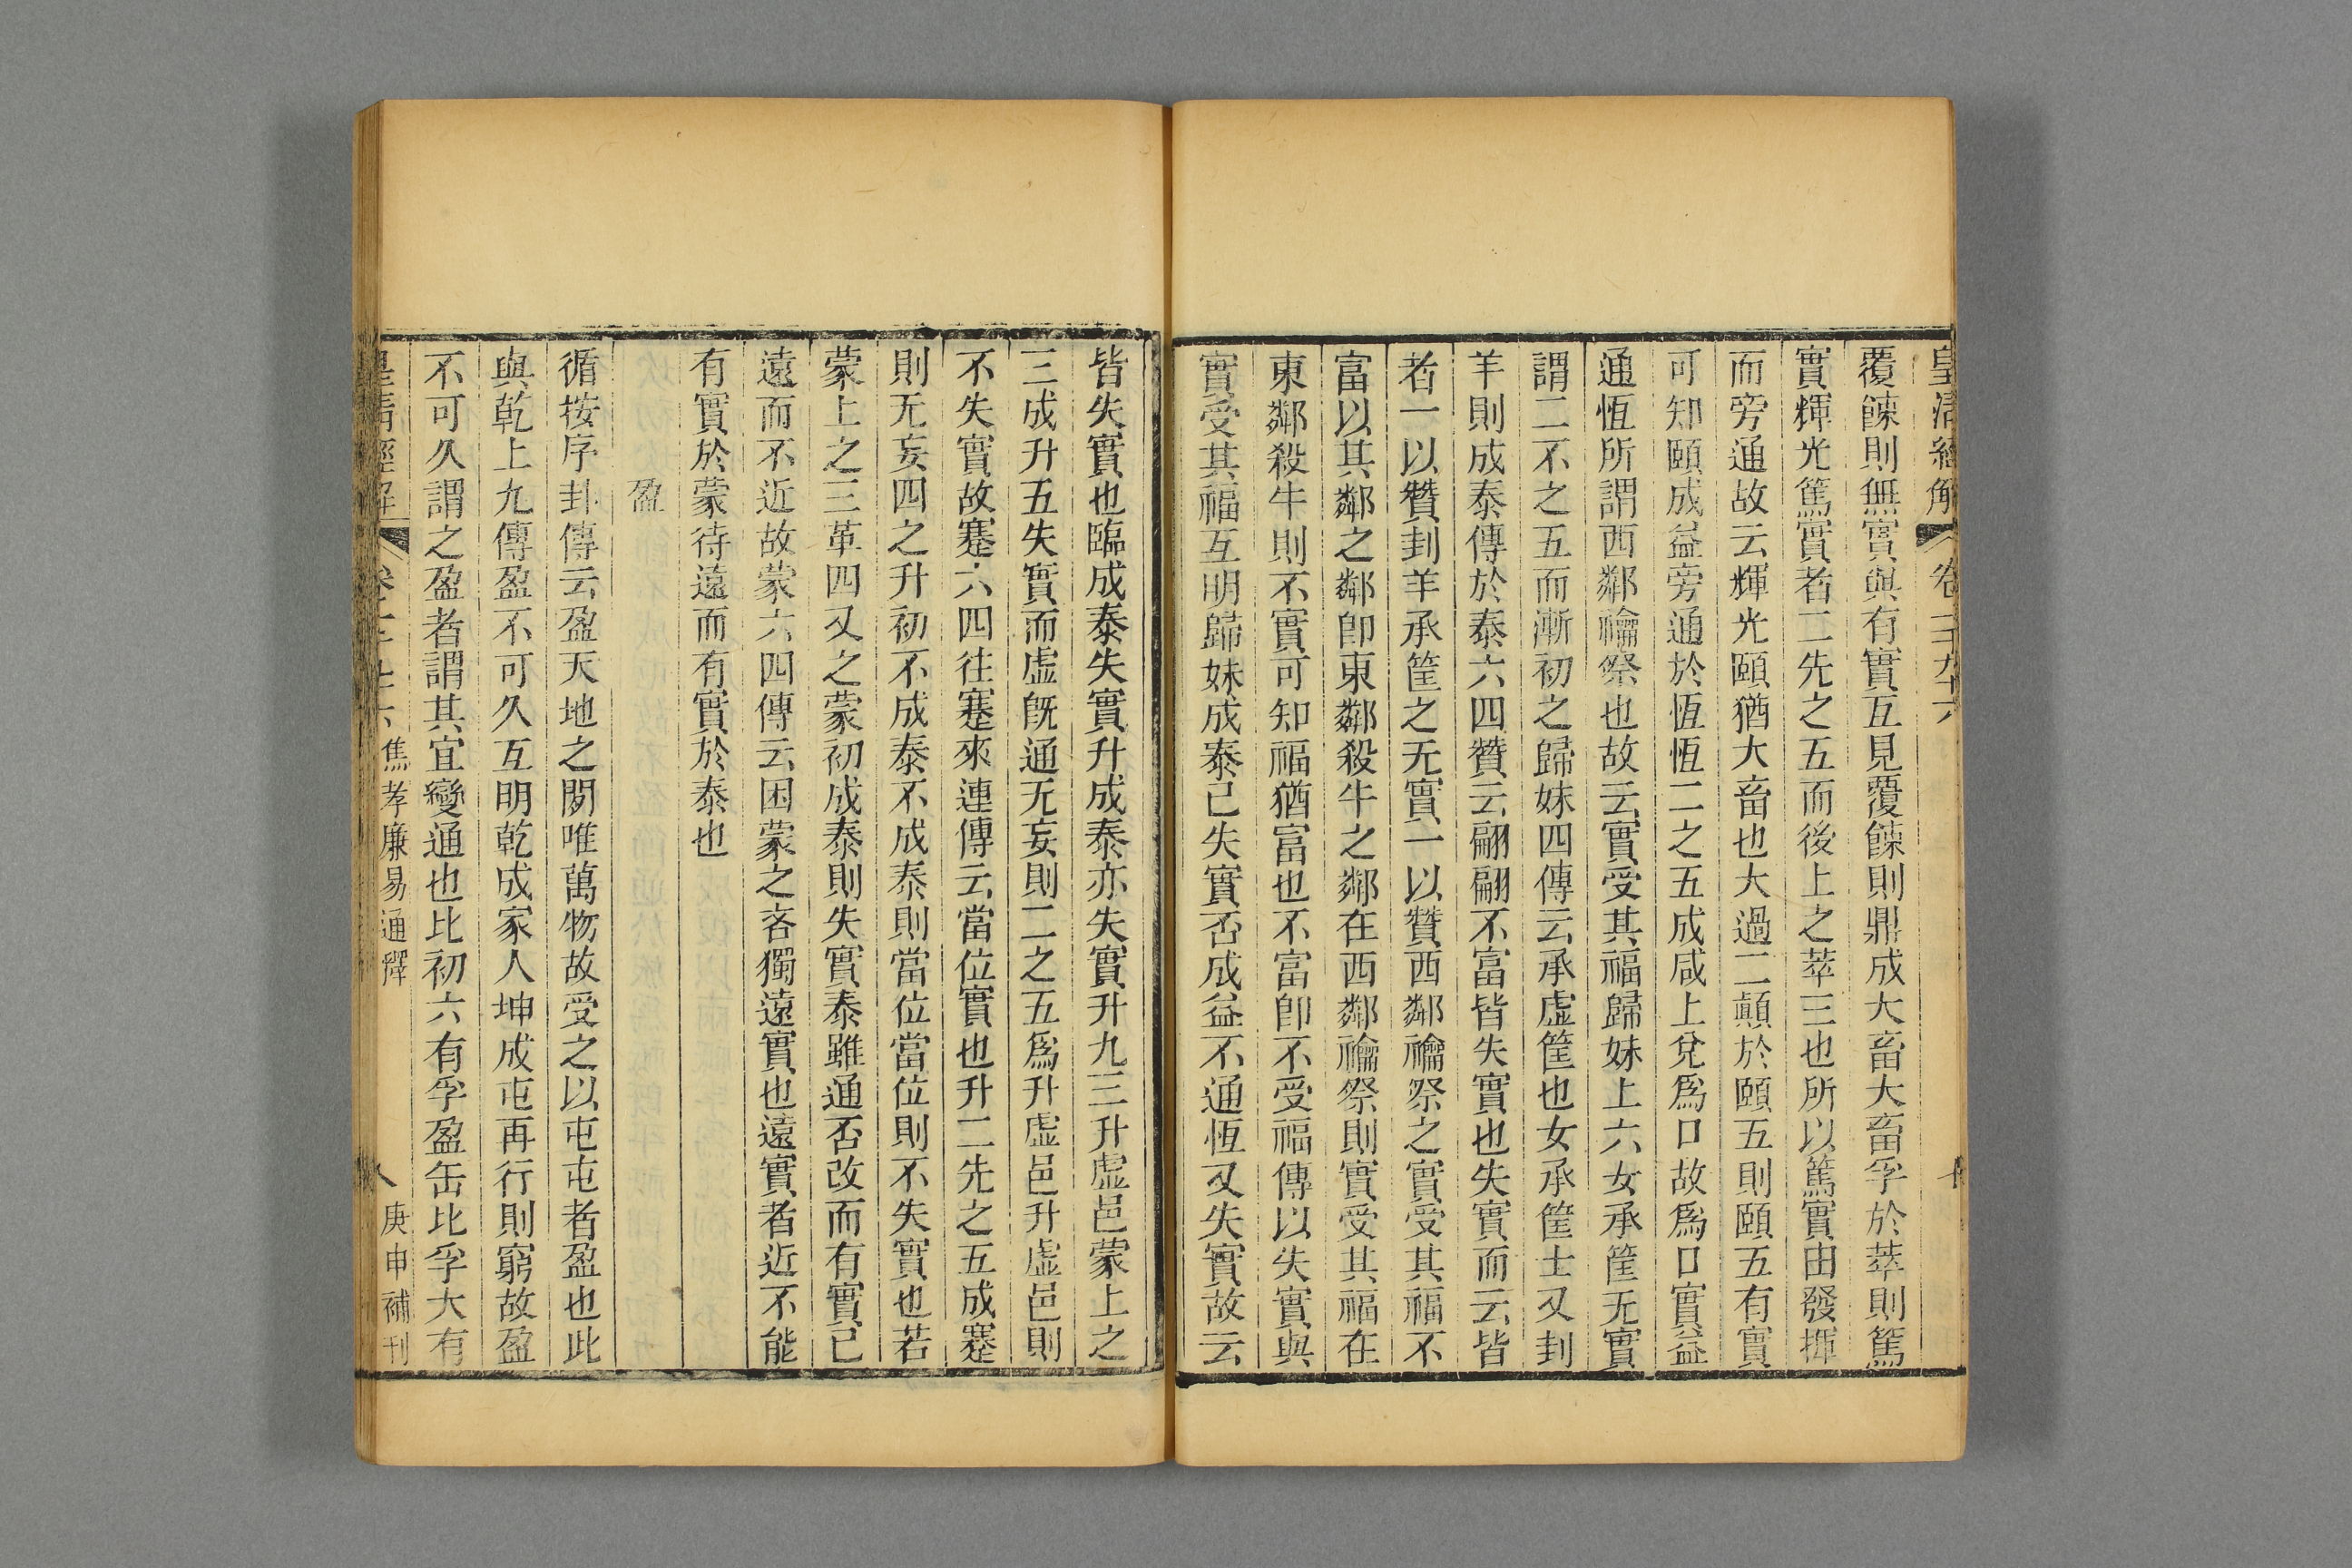 皇清經解 卷一千九十六
覆餗則無實與有實互見覆餗則鼎成大畜大畜孚於萃則篤
實輝光篤實者二先之五而後上之萃三也所以篤實由發揮
而旁通故云輝光頤猶大畜也大過二顛於頤五則頤五有實
可知頤成益旁通於恆恆二之五成咸上兌爲口故爲口實益
通恆所謂西鄰禴祭也故云實受其福歸妹上六女承筐无實
謂二不之五而漸初之歸妹四傳云承虛筐也女承筐士又刲
羊則成泰傳於泰六四贊云翩翩不富皆失實也失實而云皆
者一以贊刲羊承筐之无實一以贊西鄰禴祭之實受其福不
富以其鄰之鄰卽東鄰殺牛之鄰在西鄰禴祭則實受其福在
東鄰殺牛則不實可知福猶富也不富卽不受福傳以失實與
實受其福互明歸妹成泰已失實否成益不通恆又失實故云
皆失實也臨成泰失實升成泰亦失實升九三升虛邑蒙上之
三成升五失實而虛旣通无妄則二之五爲升虛邑升虛邑則
不失實故蹇六四往蹇來連傳云當位實也升二先之五成蹇
則无妄四之升初不成泰不成泰則當位當位則不失實也若
蒙上之三革四又之蒙初成泰則失實泰雖通否改而有實已
遠而不近故蒙六四傳云困蒙之吝獨遠實也遠實者近不能
有實於蒙待遠而有實於泰也
盈
循按序卦傳云盈天地之閒唯萬物故受之以屯屯者盈也此
與乾上九傳盈不可久互明乾成家人坤成屯再行則窮故盈
不可久謂之盈者謂其宜變通也比初六有孚盈缶比孚大有
皇清經解 卷一千九十六 焦孝廉易通釋 八 庚申補刊